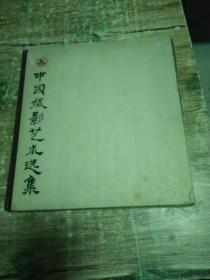 中国摄影艺术选集